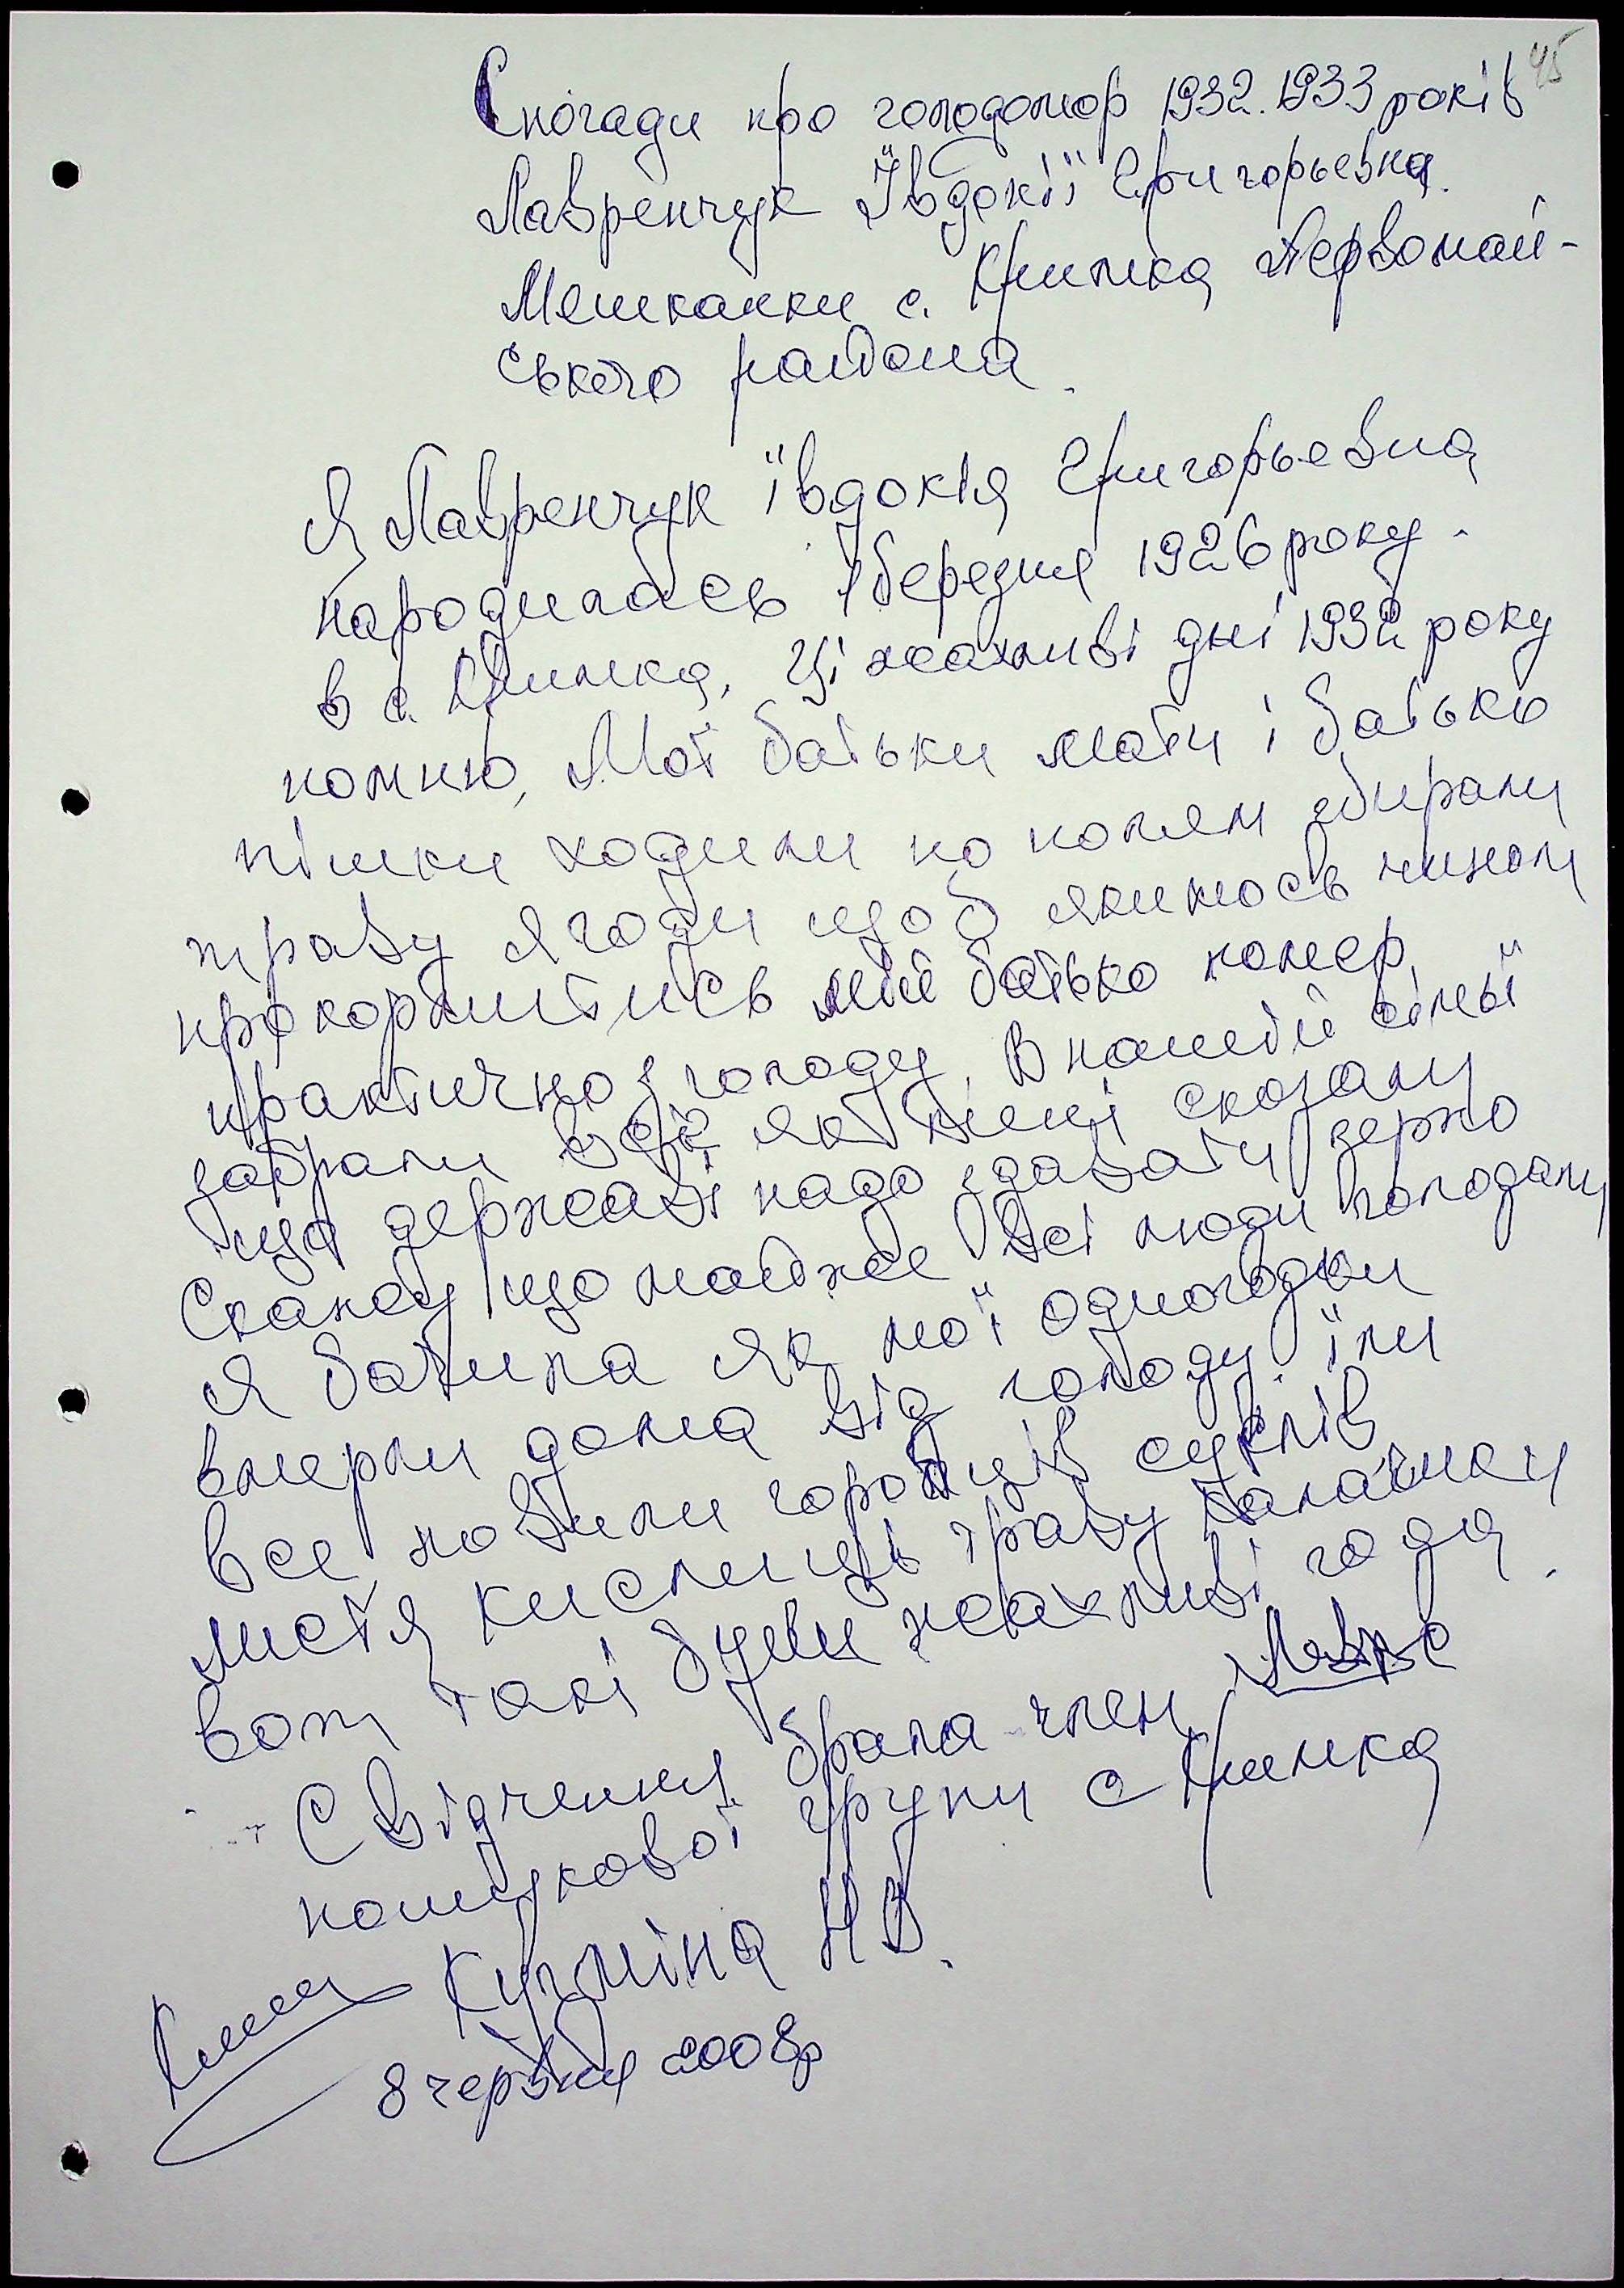 45
Спогади про голодомор 1932.1933 років
Лавренчук Ївдокії Григорьевна.
Мешканки с. Кримка Первомай-
ського района.
Я Лавренчук ївдокія Григорьевна
народилась 1 березня 1926 року.
в с. Кримка, Ці жахливі дні 1932 року
помню, Мої батьки мати і батько
пішки ходили по полям збирали
траву ягоди щоб якимось чином
прокормитись мій батько помер
практично з голоду. В нашей сімьї
забрали все, як мені сказали
що державі надо здавати зерно
Скажу що майже всі люди голодали
я бачила як мої одногодки
вмерли дома від голоду. їли
все ловили горобців сусліків
листя кислиць траву калачики
вот такі були жахливі года.
Свідчення брала член
пошукової групи с Кримка
Кузміна Н В.
8 червня 2008р